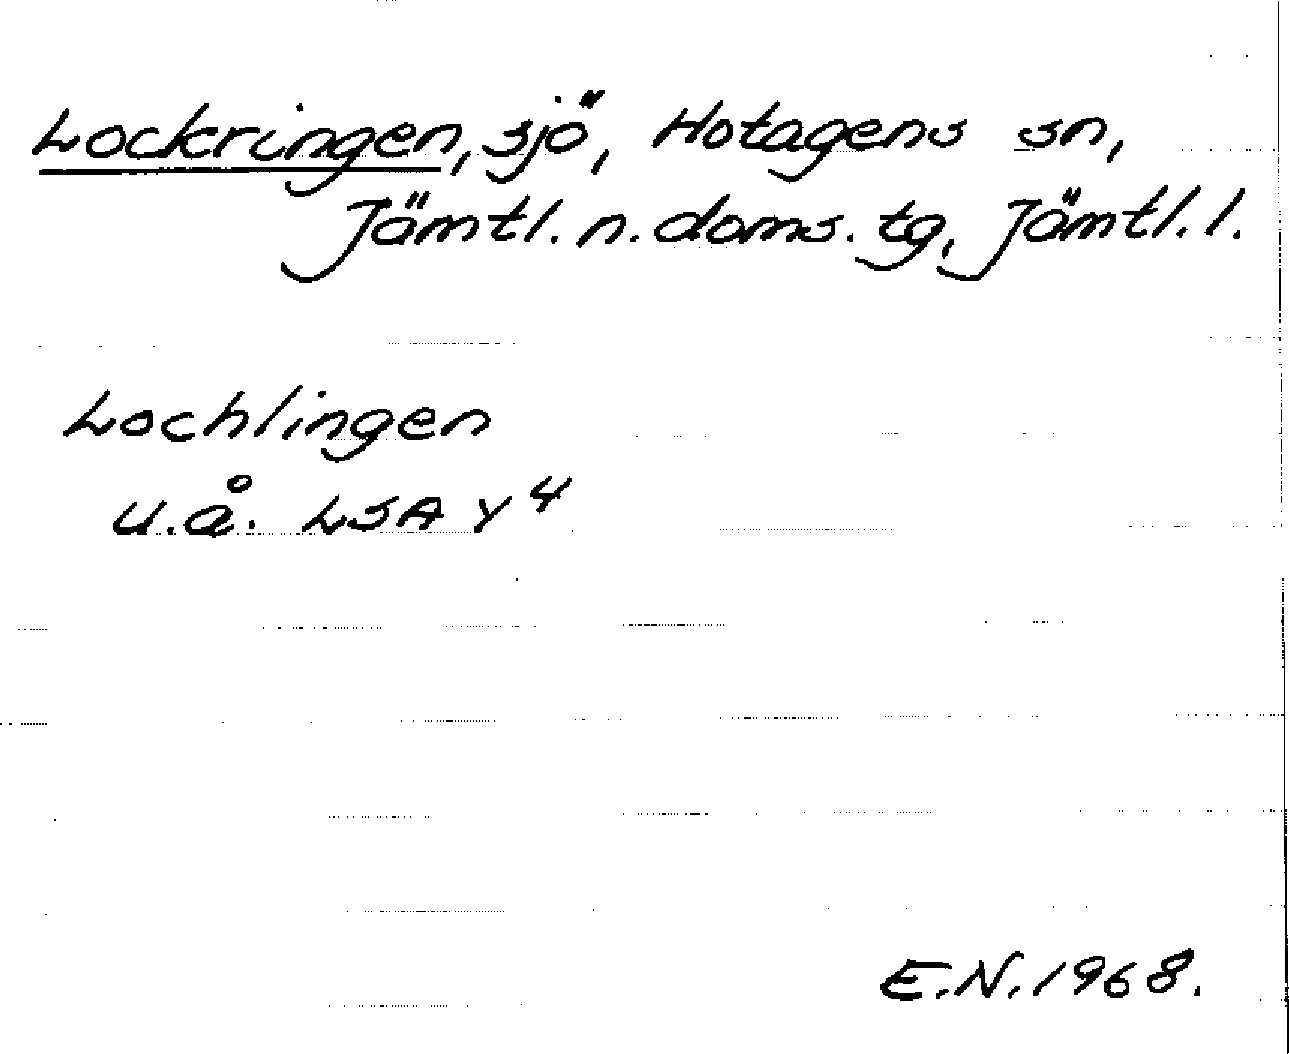 Lockringen, sjö, Hotagens sn,
Jämtl. n. doms. tg, Jämtl. l.
Lochlingen
u.å. LSA Y 4
E.N. 1968.